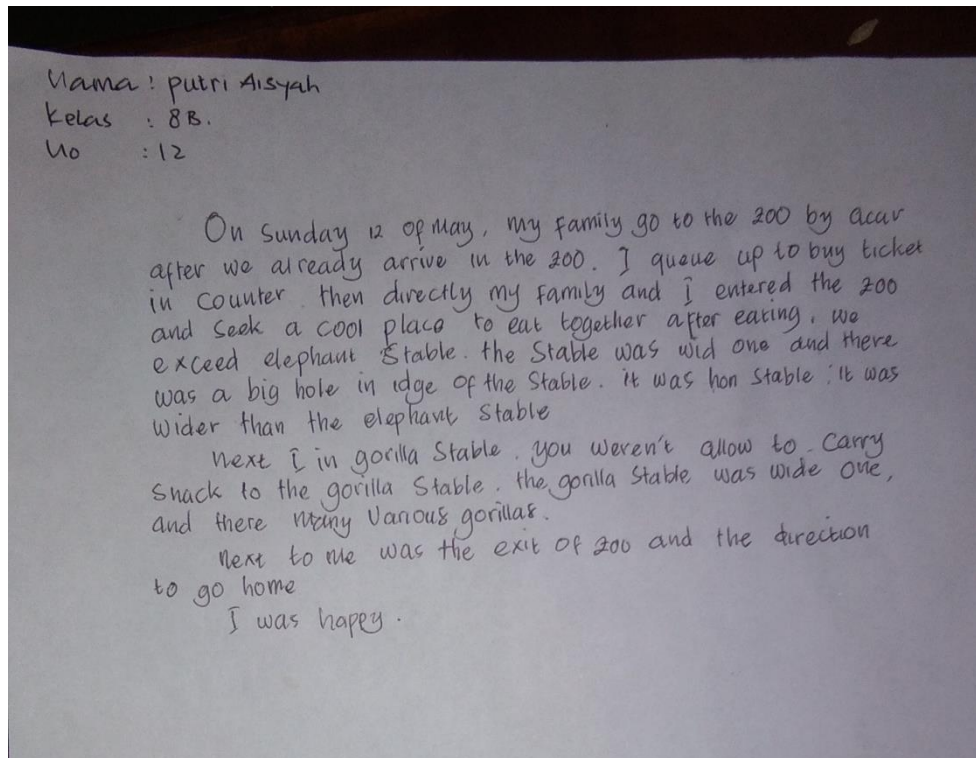 Nama : Putri Aisyah
Kelas : 8B.
No : 12
On Sunday 12 of May, my family go to the zoo by acar
after we already arrive in the zoo. I queue up to buy ticket
in Counter. then directly my family and I entered the zoo
and Seek a cool place to eat together after eating, we
exceed elephant Stable. the Stable was wid one and there
was a big hole in idge of the Stable. it was hon Stable ; it was
wider than the elephant Stable
next I in gorilla Stable. you weren't allow to carry
Snack to the gorilla Stable. the gorilla Stable was wide one,
and there many various gorillas.
next to me was the exit of zoo and the direction
to go home
I was happy.